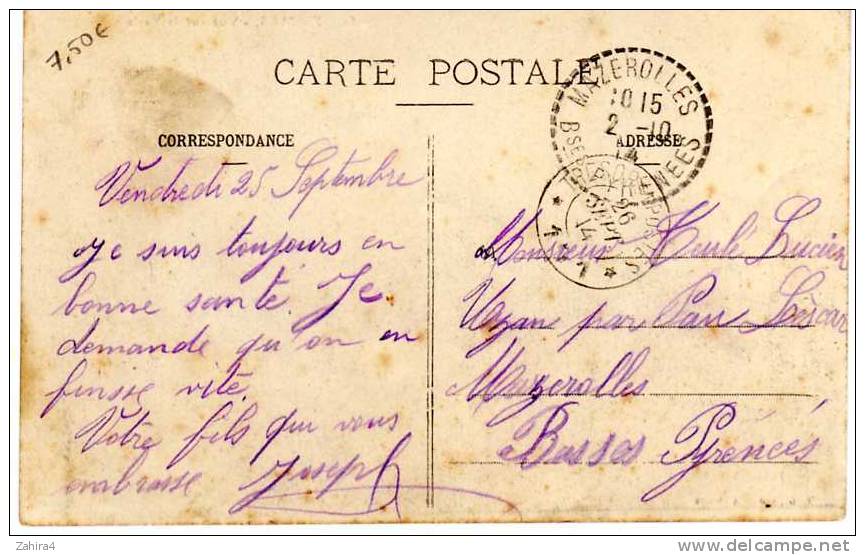 7,50€
CARTE POSTALE
CORRESPONDANCE
ADRESSE
MAZEROLLES
10 15
2 -10
14
Bses PYRENEES
TRESOR ET POSTES
26
SEPT
14
* 1 *
Vendredi 25 Septembre
Je suis toujours en
bonne santé. Je
demande qu'on en
finisse vite.
Votre fils qui vous
embrasse Joseph
Monsieur Teulé Lucien
Uzan par Pau
Mazerolles
Basses Pyrénées
Zahira4
www.delcampe.net